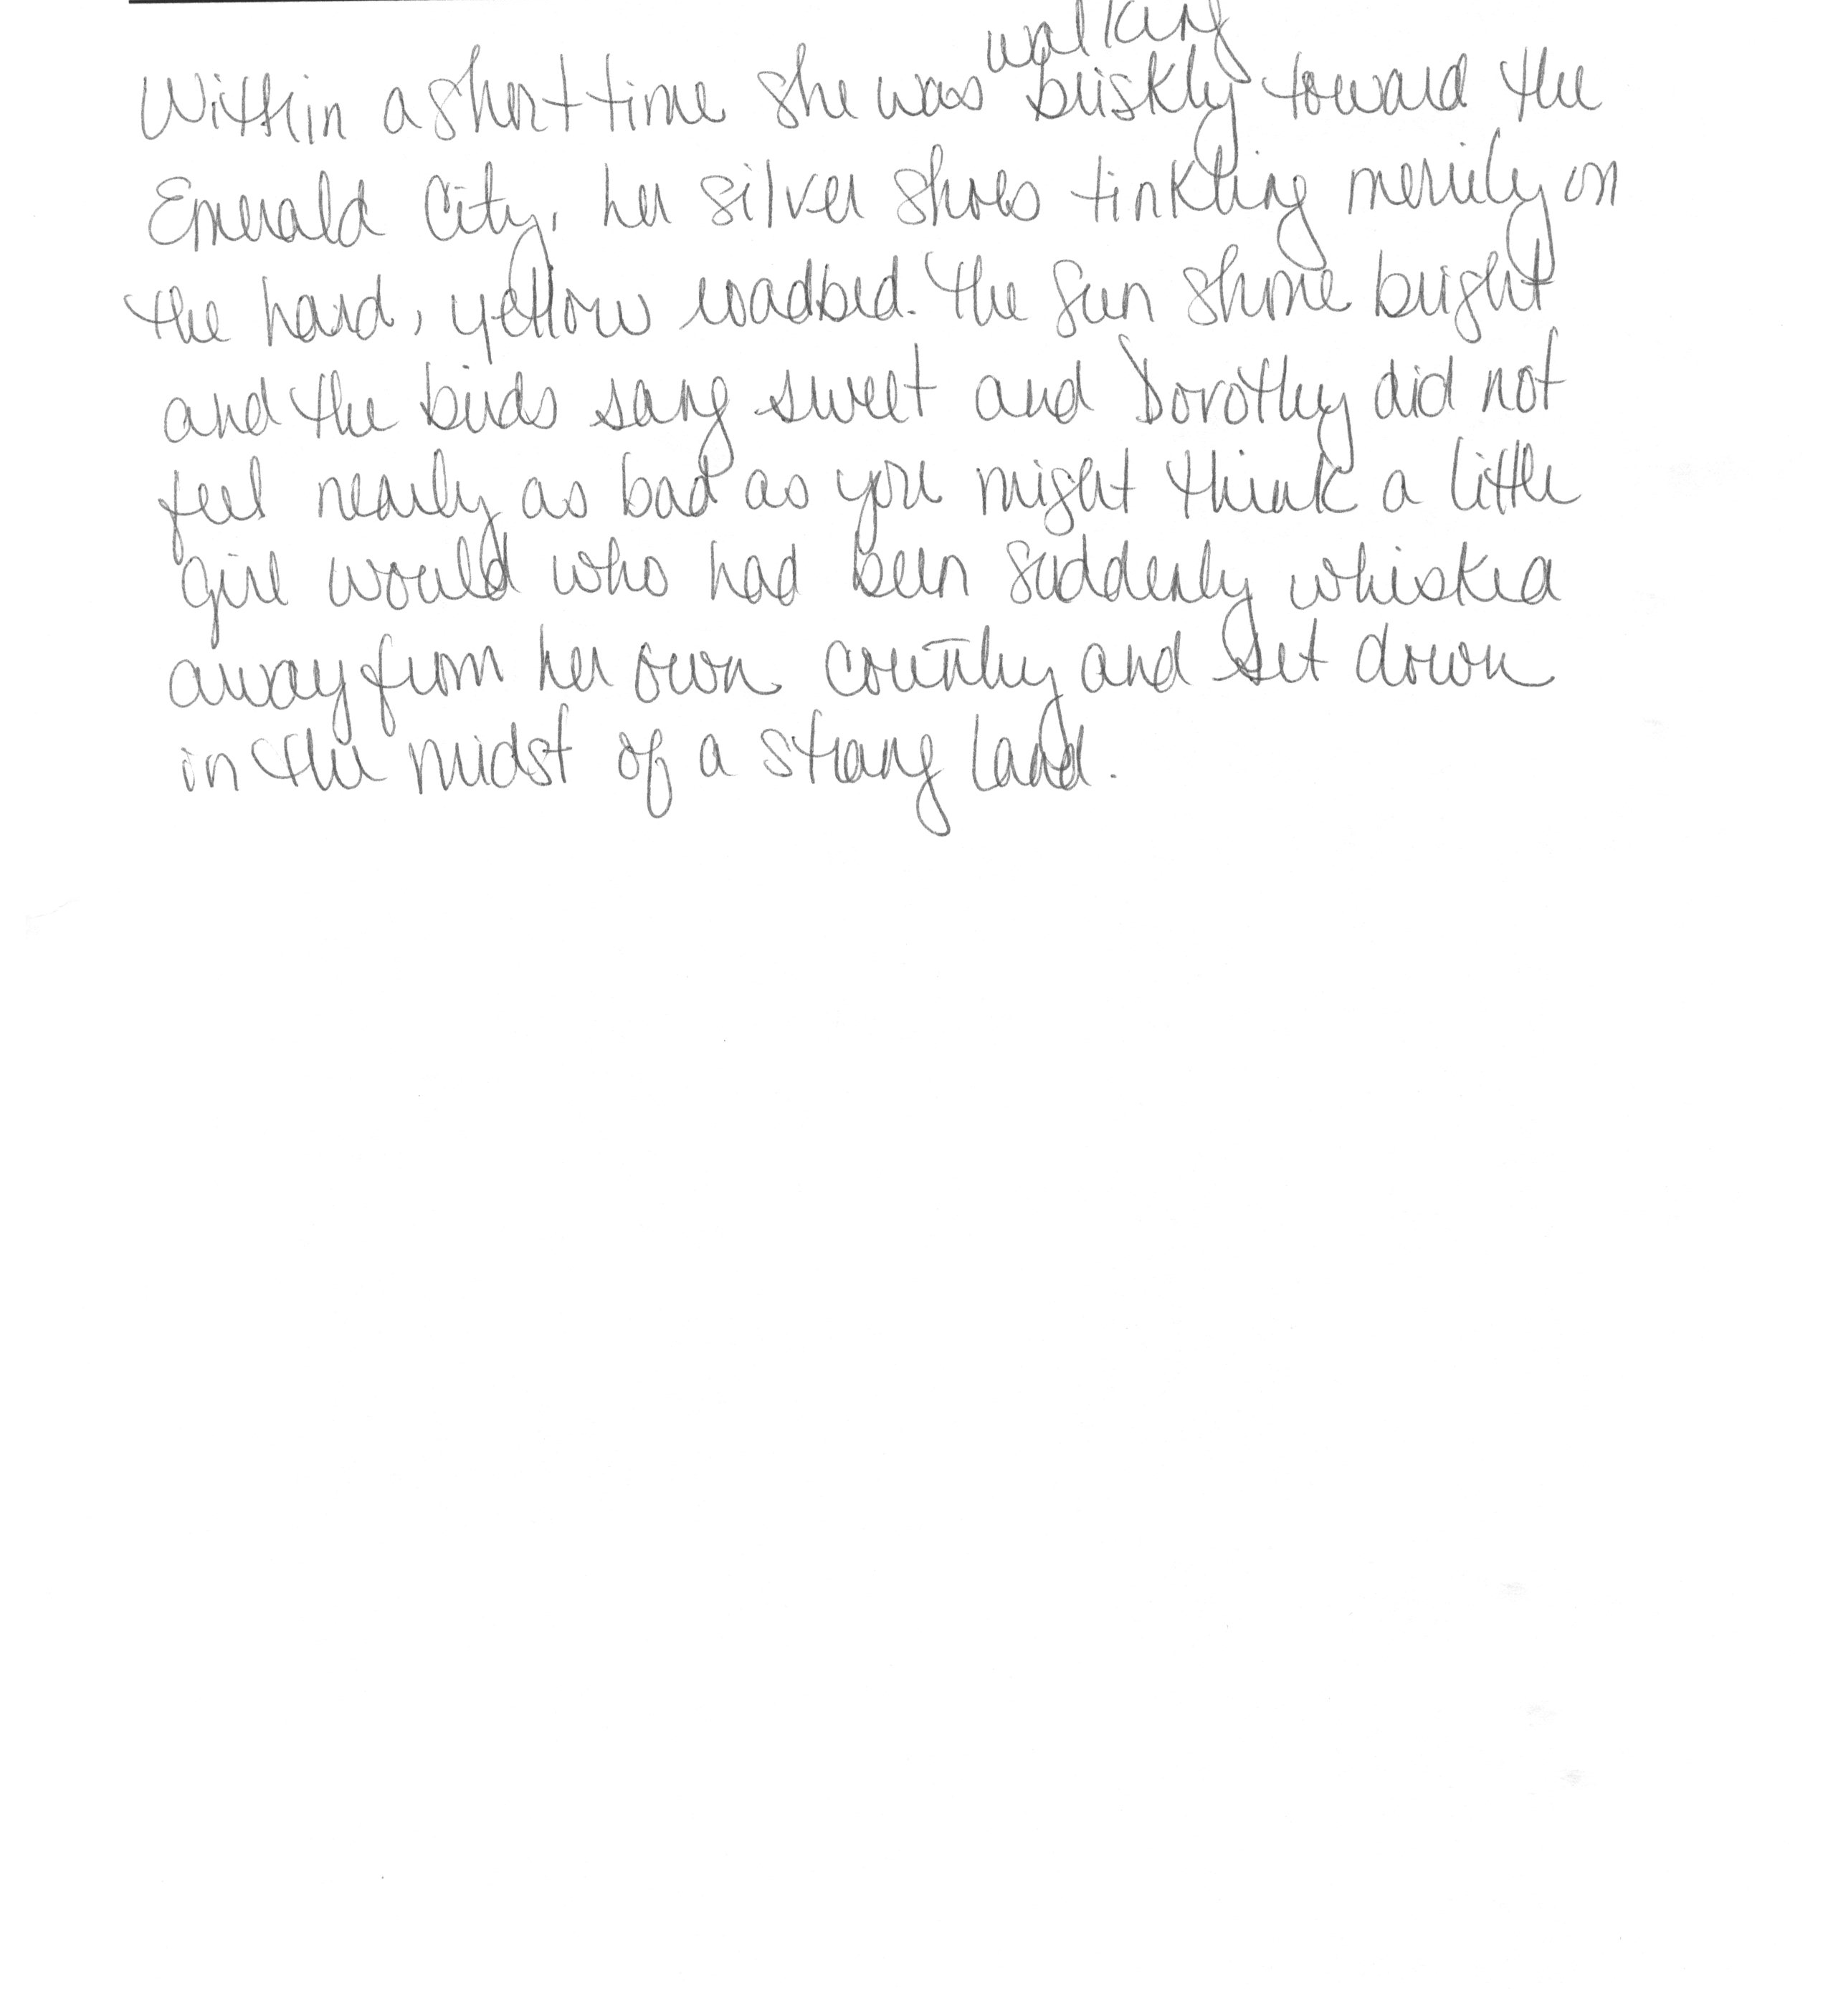 Within a short time she was walking briskly toward the
Emerald City, her silver shoes tinkling merrily on
the hard, yellow roadbed. The sun shone bright
and the birds sang sweet and Dorothy did not
feel nearly as bad as you might think a little
girl would who had been suddenly whisked
away from her own country and set down
in the midst of a strang land.